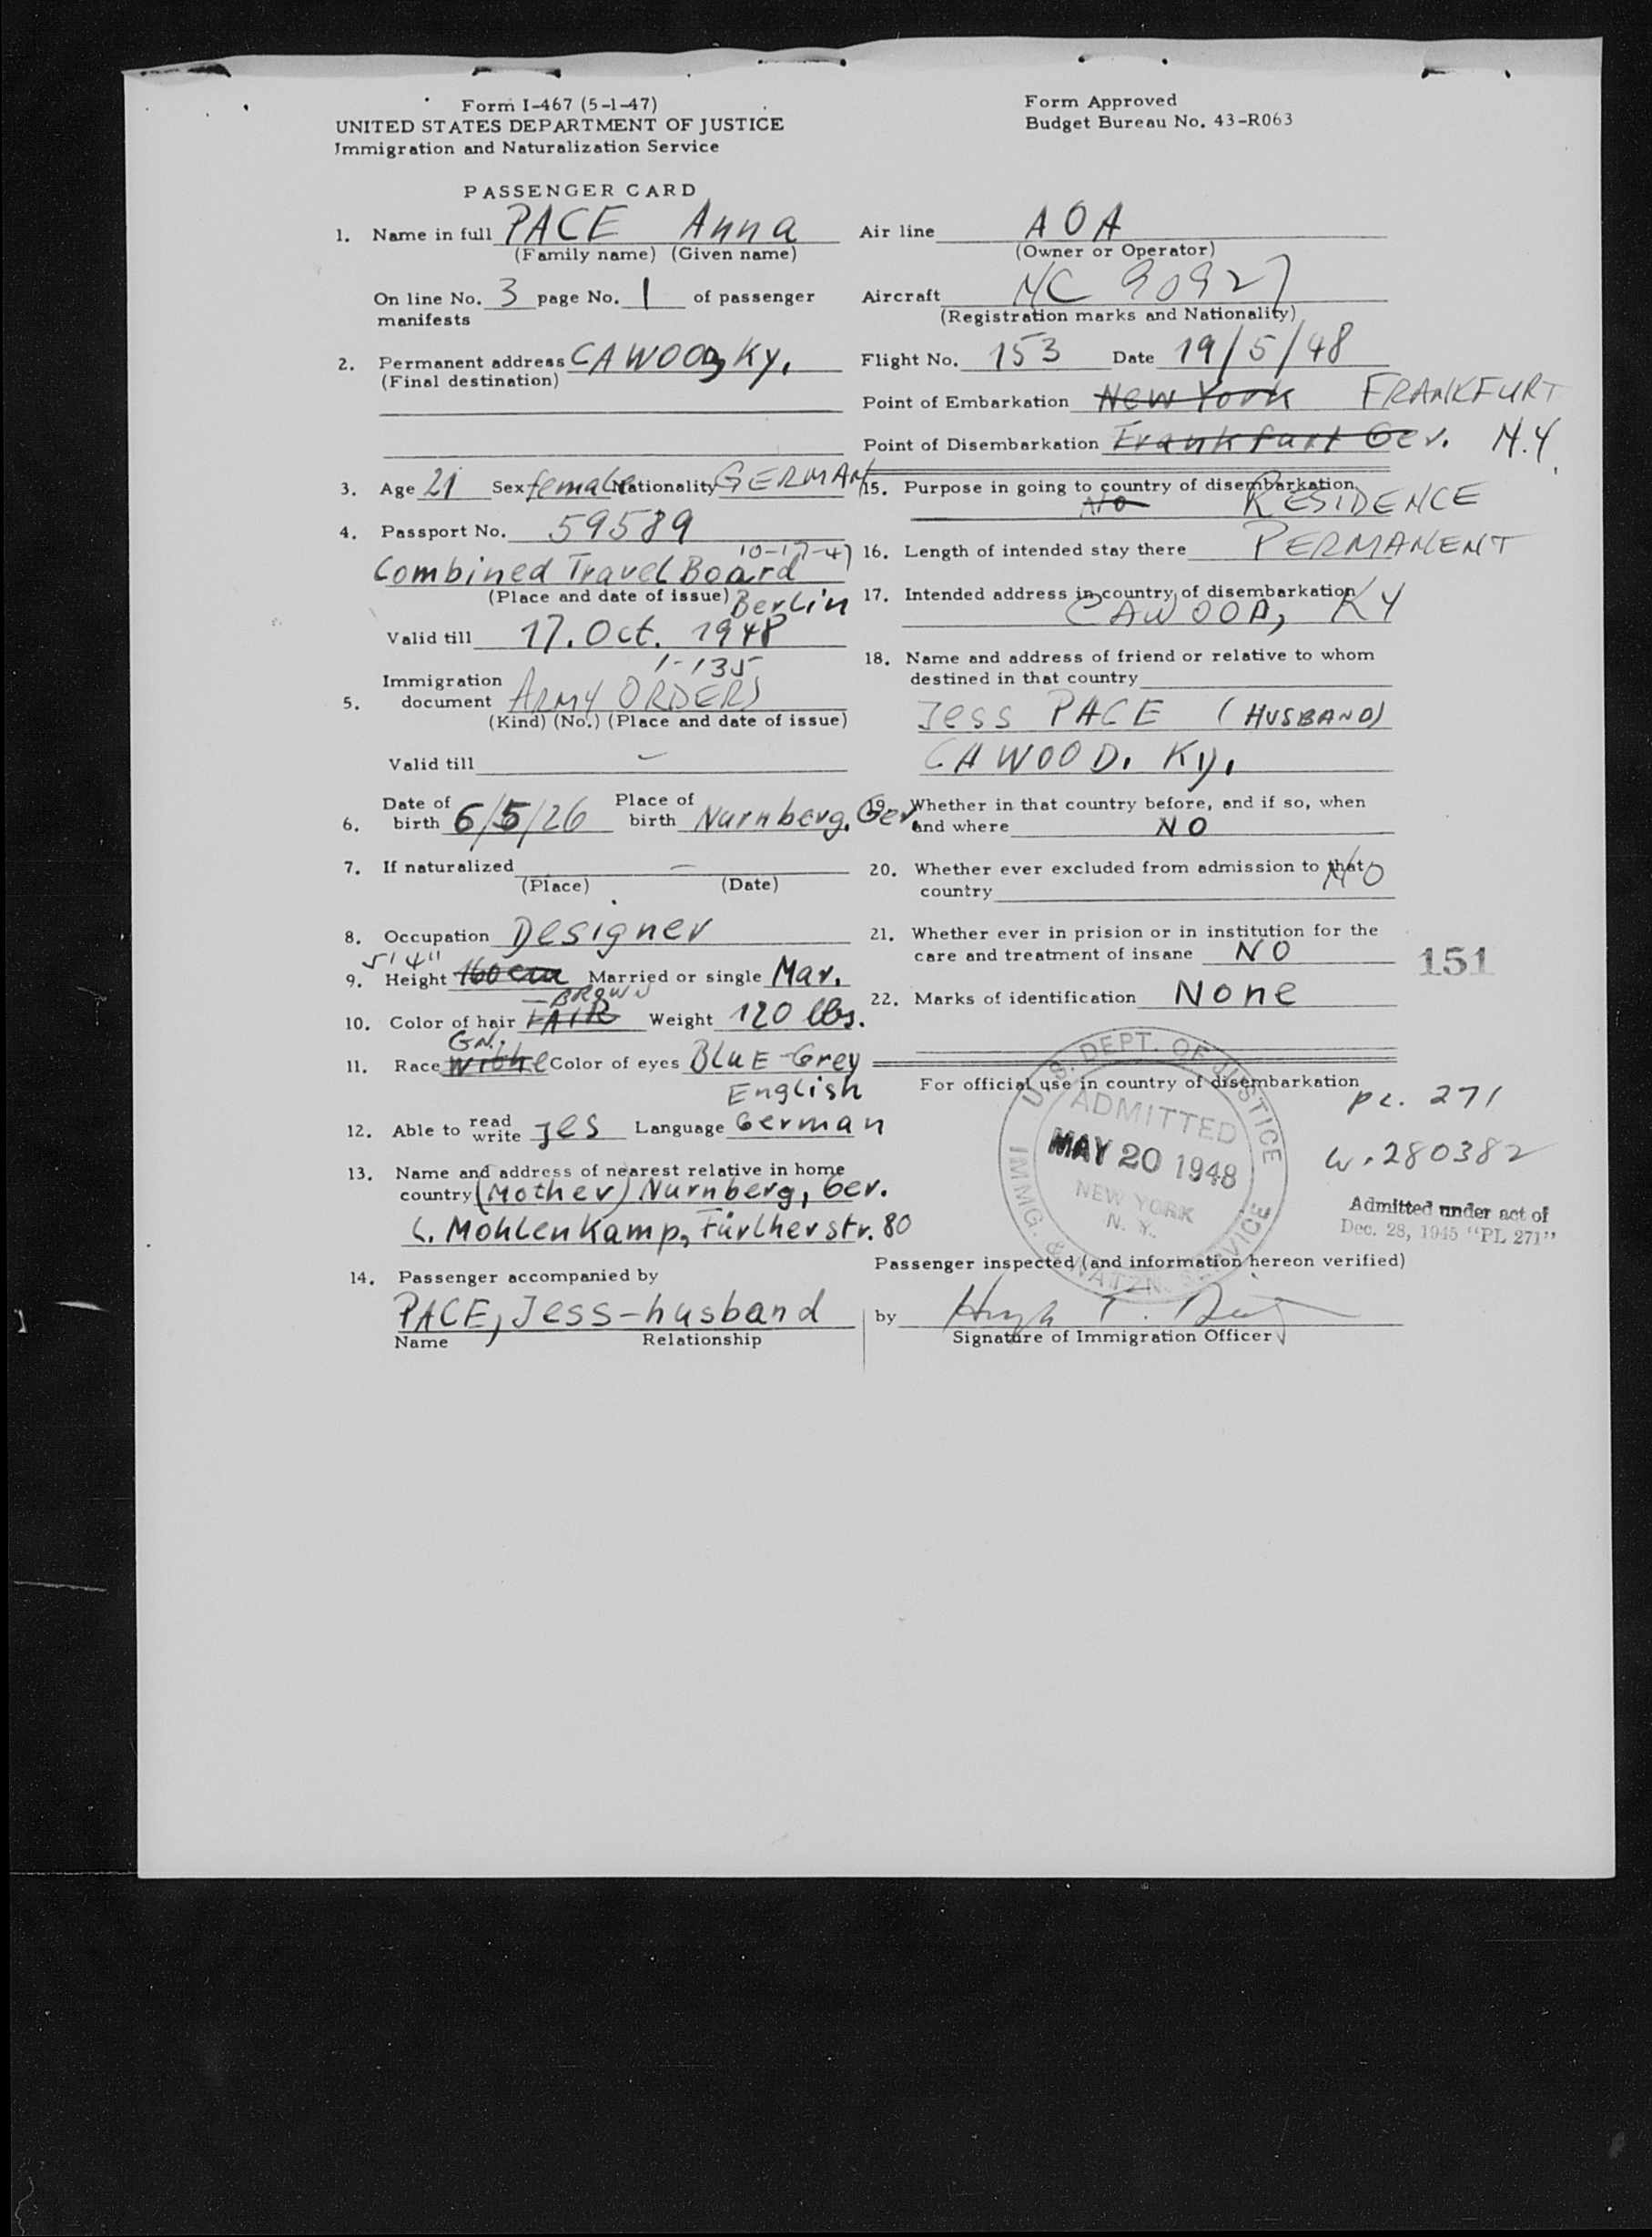 Form I-467 (5-1-47)
UNITED STATES DEPARTMENT OF JUSTICE
Immigration and Naturalization Service
Form Approved
Budget Bureau No. 43-R063
PASSENGER CARD
1. Name in full PACE Anna
(Family name) (Given name)
On line No. 3 page No. 1 of passenger
manifests
2. Permanent address CAWOOD, Ky.
(Final destination)
3. Age 21 Sex female Nationality GERMAN
4. Passport No. 59589
10-17-47
Combined Travel Board
(Place and date of issue) Berlin
Valid till 17. Oct. 1948
1-135
Immigration
5. document ARMY ORDERS
(Kind) (No.) (Place and date of issue)
Valid till -
Date of Place of
6. birth 6/5/26 birth Nurnberg, Ger.
7. If naturalized -
(Place) (Date)
8. Occupation Designer
5' 4"
9. Height 160 cm Married or single Mar.
- BROWN
10. Color of hair FAIR Weight 120 lbs.
GN.
11. Race withe Color of eyes BLUE-Grey
English
12. Able to read write yes Language German
13. Name and address of nearest relative in home
country (Mother) Nurnberg, Ger.
L. Mohlenkamp, Fürtherstr. 80
14. Passenger accompanied by
PACE, Jess-husband
Name Relationship
Air line AOA
(Owner or Operator)
Aircraft NC 90927
(Registration marks and Nationality)
Flight No. 153 Date 19/5/48
Point of Embarkation New York FRANKFURT
Point of Disembarkation Frankfurt Ger. N.Y.
15. Purpose in going to country of disembarkation
No RESIDENCE
16. Length of intended stay there PERMANENT
17. Intended address in country of disembarkation
CAWOOD, KY
18. Name and address of friend or relative to whom
destined in that country
Jess PACE (HUSBAND)
CAWOOD. Ky.
19. Whether in that country before, and if so, when
and where NO
20. Whether ever excluded from admission to that
country NO
21. Whether ever in prision or in institution for the
care and treatment of insane NO
151
22. Marks of identification None
For official use in country of disembarkation
PL. 271
W. 280382
U.S. DEPT. OF JUSTICE
ADMITTED
MAY 20 1948
NEW YORK
N. Y.
IMMG. & NATZN. SERVICE
Admitted under act of
Dec. 28, 1945 "PL 271"
Passenger inspected (and information hereon verified)
by Hugh T.
Signature of Immigration Officer